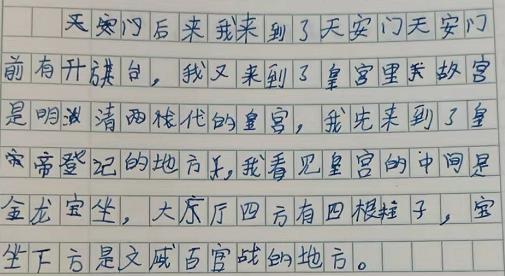 天安门后来我来到了天安门天安门
前有升旗台，我又来到了皇宫里关故宫
是明清两代的皇宫，我先来到了皇
帝登记的地方，我看见皇宫的中间是
金龙宝坐，大厅四方有四根柱子，宝
坐下方是文武百官战的地方。